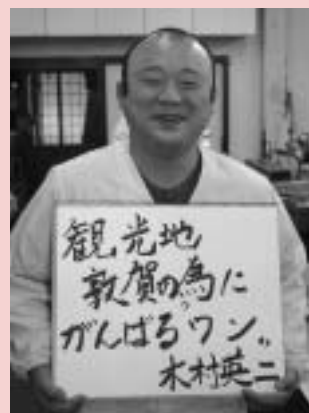 観光地
敦賀の為に
がんばるワン〃
木村英二